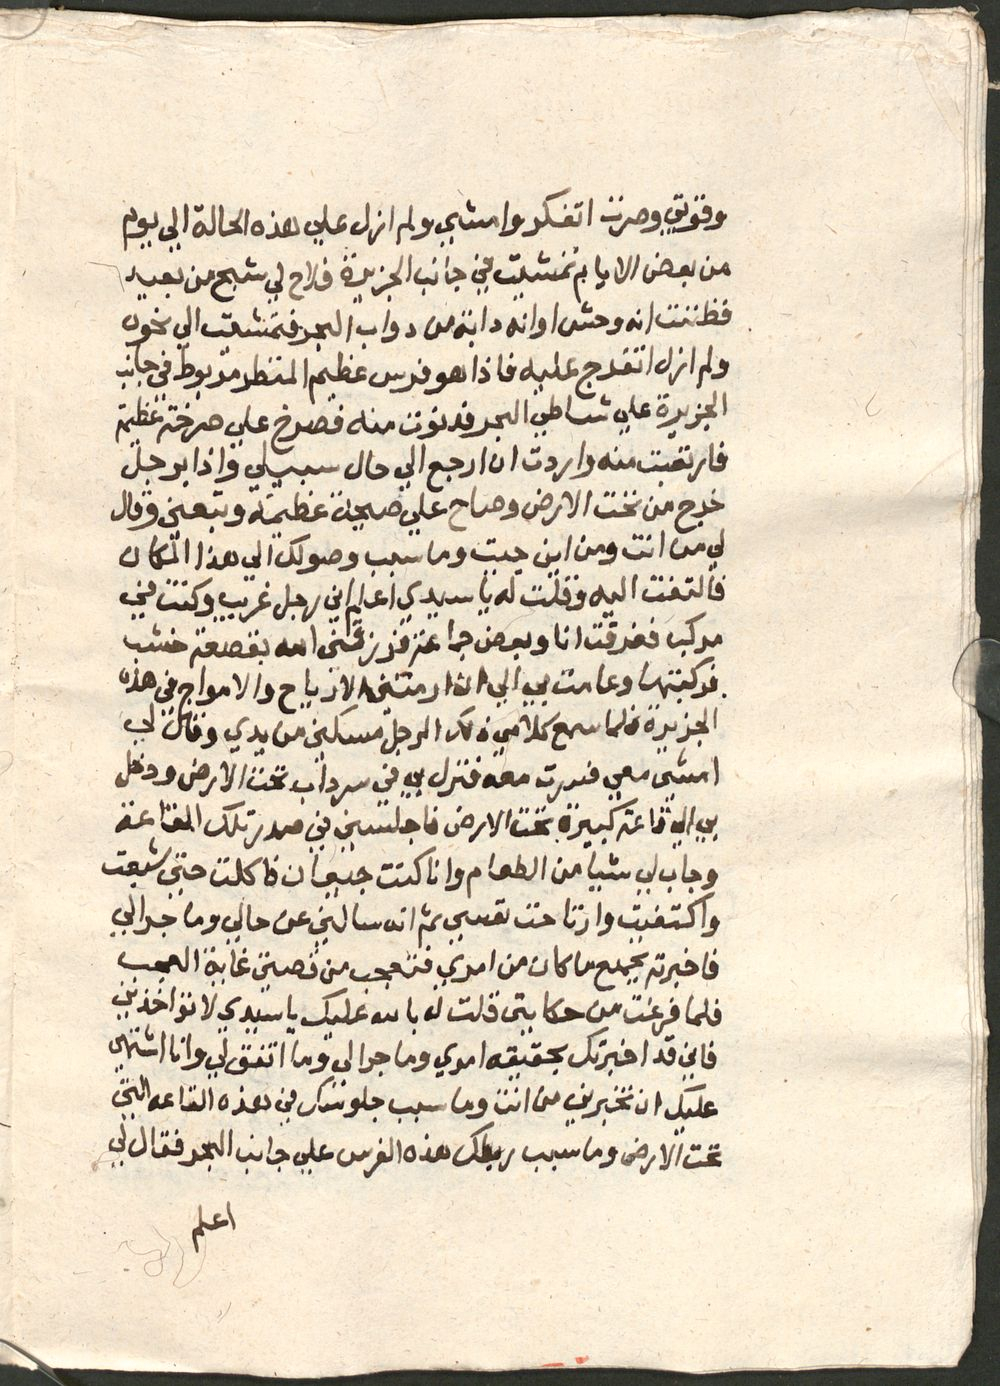 وقويتي وصرت اتفكر وامشي ولم ازل علي هذه الحالة الي يوم
من بعض الايام تمشيت في جانب الجزيرة فلاح لي شبح من بعيد
فظننت انه وحش اوانه دابة من دواب البحر فتمشيت الي نحوه
ولم ازل اتفرج عليه فاذا هو فرس عظيم المنظر مربوط في جانب
الجزيرة علي شاطي البحر فدنوت منه فصرخ علي صرخة عظيمة
فارتعبت منه واردت ان ارجع الي حال سبيلي واذا برجل
خرج من تحت الارض وصاح علي صيحة عظيمة وتبعني وقال
لي من انت ومن اين جيت وما سبب وصولك الي هذا المكان
فالتفت اليه وقلت له يا سيدي اعلم اني رجل غريب وكنت في
مركب فغرقت انا وبعض جماعة فرزقني الله بقصعة خشب
فركبتها وعامت بي الي ان ارمتني الارياح والامواج في هذه
الجزيرة فلما سمع كلامي ذلك الرجل مسكني من يدي وقال لي
امشي معي فسرت معه فنزل بي في سرداب تحت الارض ودخل
بي الي قاعة كبيرة تحت الارض فاجلسني في صدر تلك القاعة
وجاب لي شيا من الطعام وانا كنت جيعان فاكلت حتي شبعت
واكتفيت وارتاحت نفسي ثم انه سالني عن حالي وما جرالي
فاخبرته بجميع ما كان من امري فتعجب من قصتي غاية العجب
فلما فرغت من حكايتي قلت له بالله عليك يا سيدي لا تواخذني
فاني قد اخبرتك بحقيقه امري وما جرالي وما اتفق لي وانا اشتهي
عليك ان تخبرني من انت وما سبب جلوسك في هذه القاعه التي
تحت الارض وما سبب ربطك هذه الفرس علي جانب البحر فقال لي
اعلم